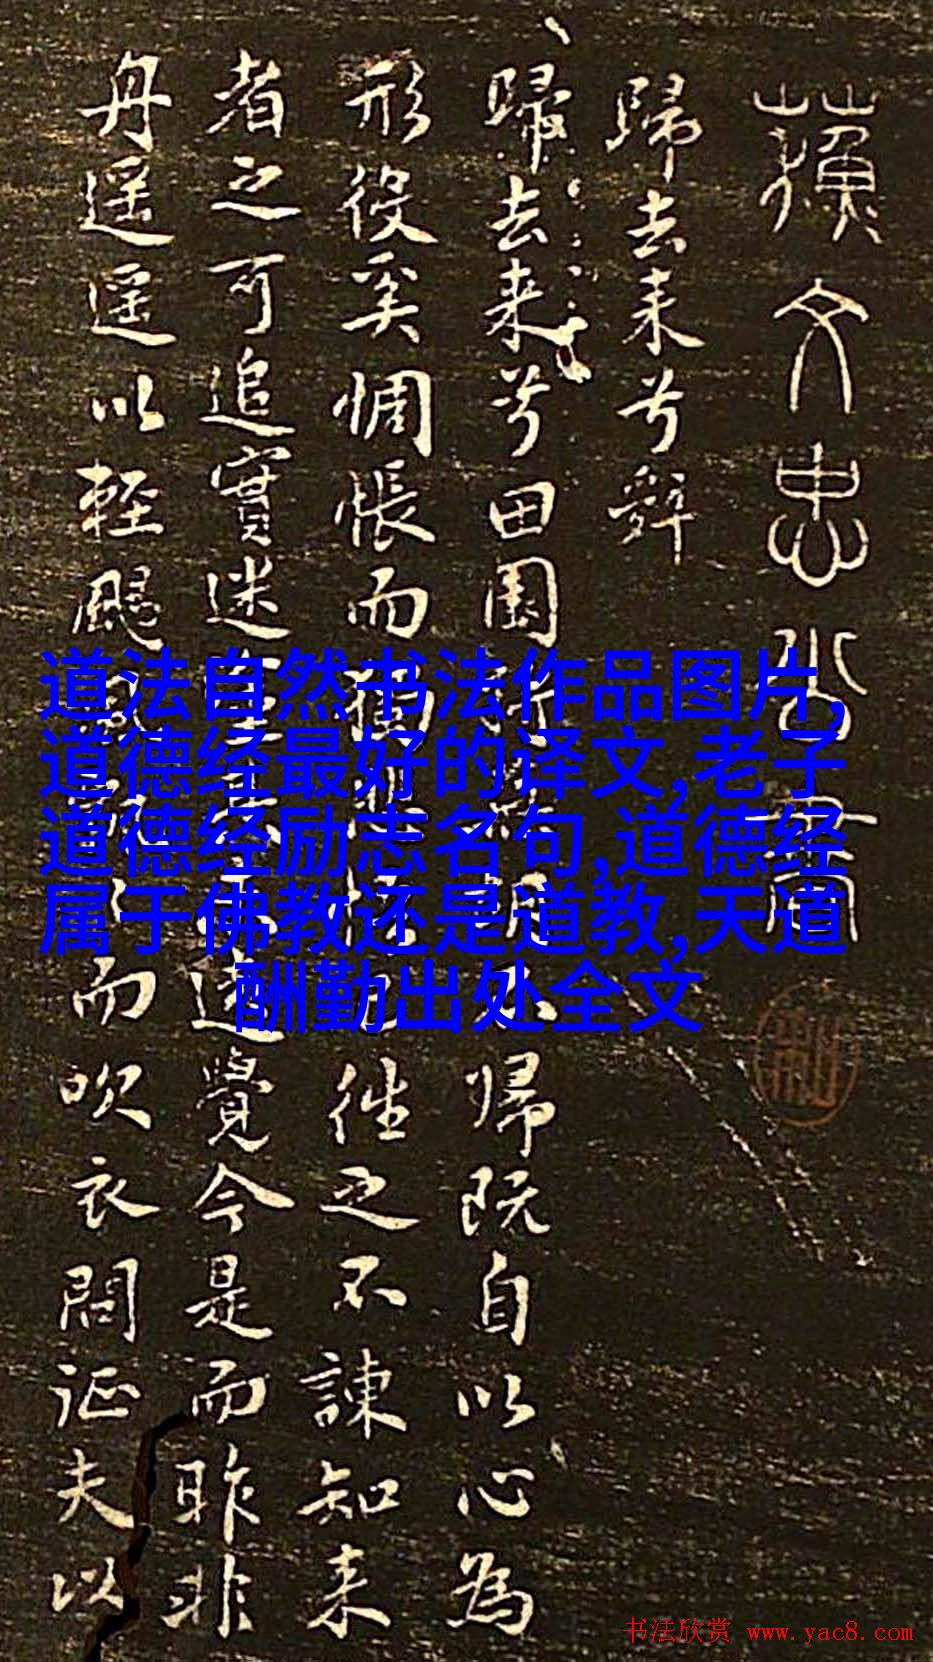 蘓文忠公
歸去来兮辤
歸去来兮田園不帰既自以心為
形役奚惆悵而獨往之不諫知来
者之可追實迷遠覺今是而昨非
舟遥遥以輕颺而吹衣問征夫以
道法自然书法作品图片,
道德经最好的译文,老子
道德经励志名句,道德经
属于佛教还是道教,天道
酬勤出处全文
书法欣赏 www.yac8.com